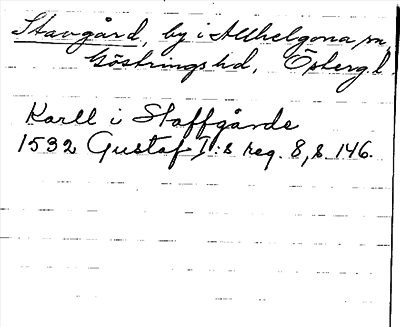 Stavgård, by i Allhelgona sn,
Göstrings hd, Östergl.
Karll i Staffgårde
1532 Gustaf I:s reg. 8, s. 146.